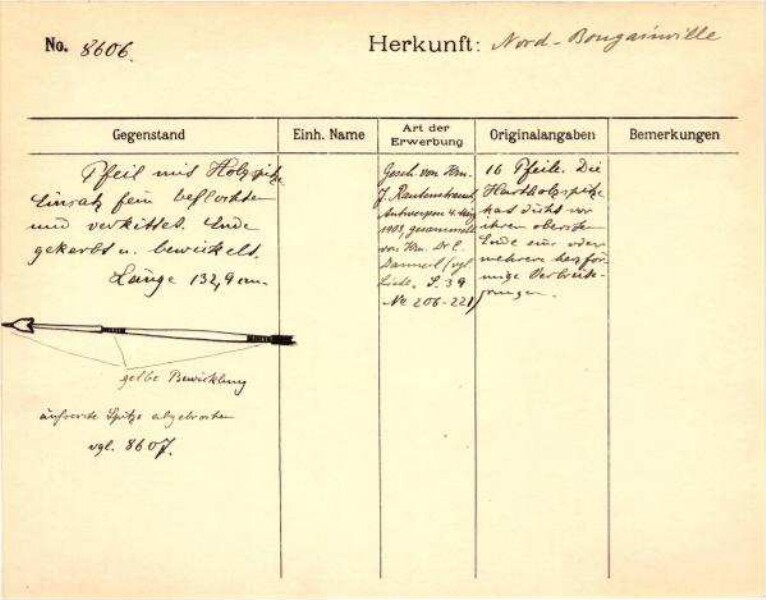 No. 8606.
Herkunft: Nord-Bougainville
Gegenstand
Einh. Name
Art der Erwerbung
Originalangaben
Bemerkungen
Pfeil mit Holzspitze
Einsatz fein beflochten
und verkittet. Ende
gekerbt u. bewickelt.
Länge 132,9 cm.
gelbe Bewicklung
äußerste Spitze abgebrochen
vgl. 8607.
Gesch. von Hrn.
J. Rautenstrauch,
Antwerpen 4.
1903, gesammelt
von Hrn. Dr.
(vgl.
Liste, S. 39
No 206-221)
16 Pfeile. Die
Hartholzspitze
hat dicht vor
ihrem obersten
Ende eine oder
mehrere herzför
mige Verbrei-